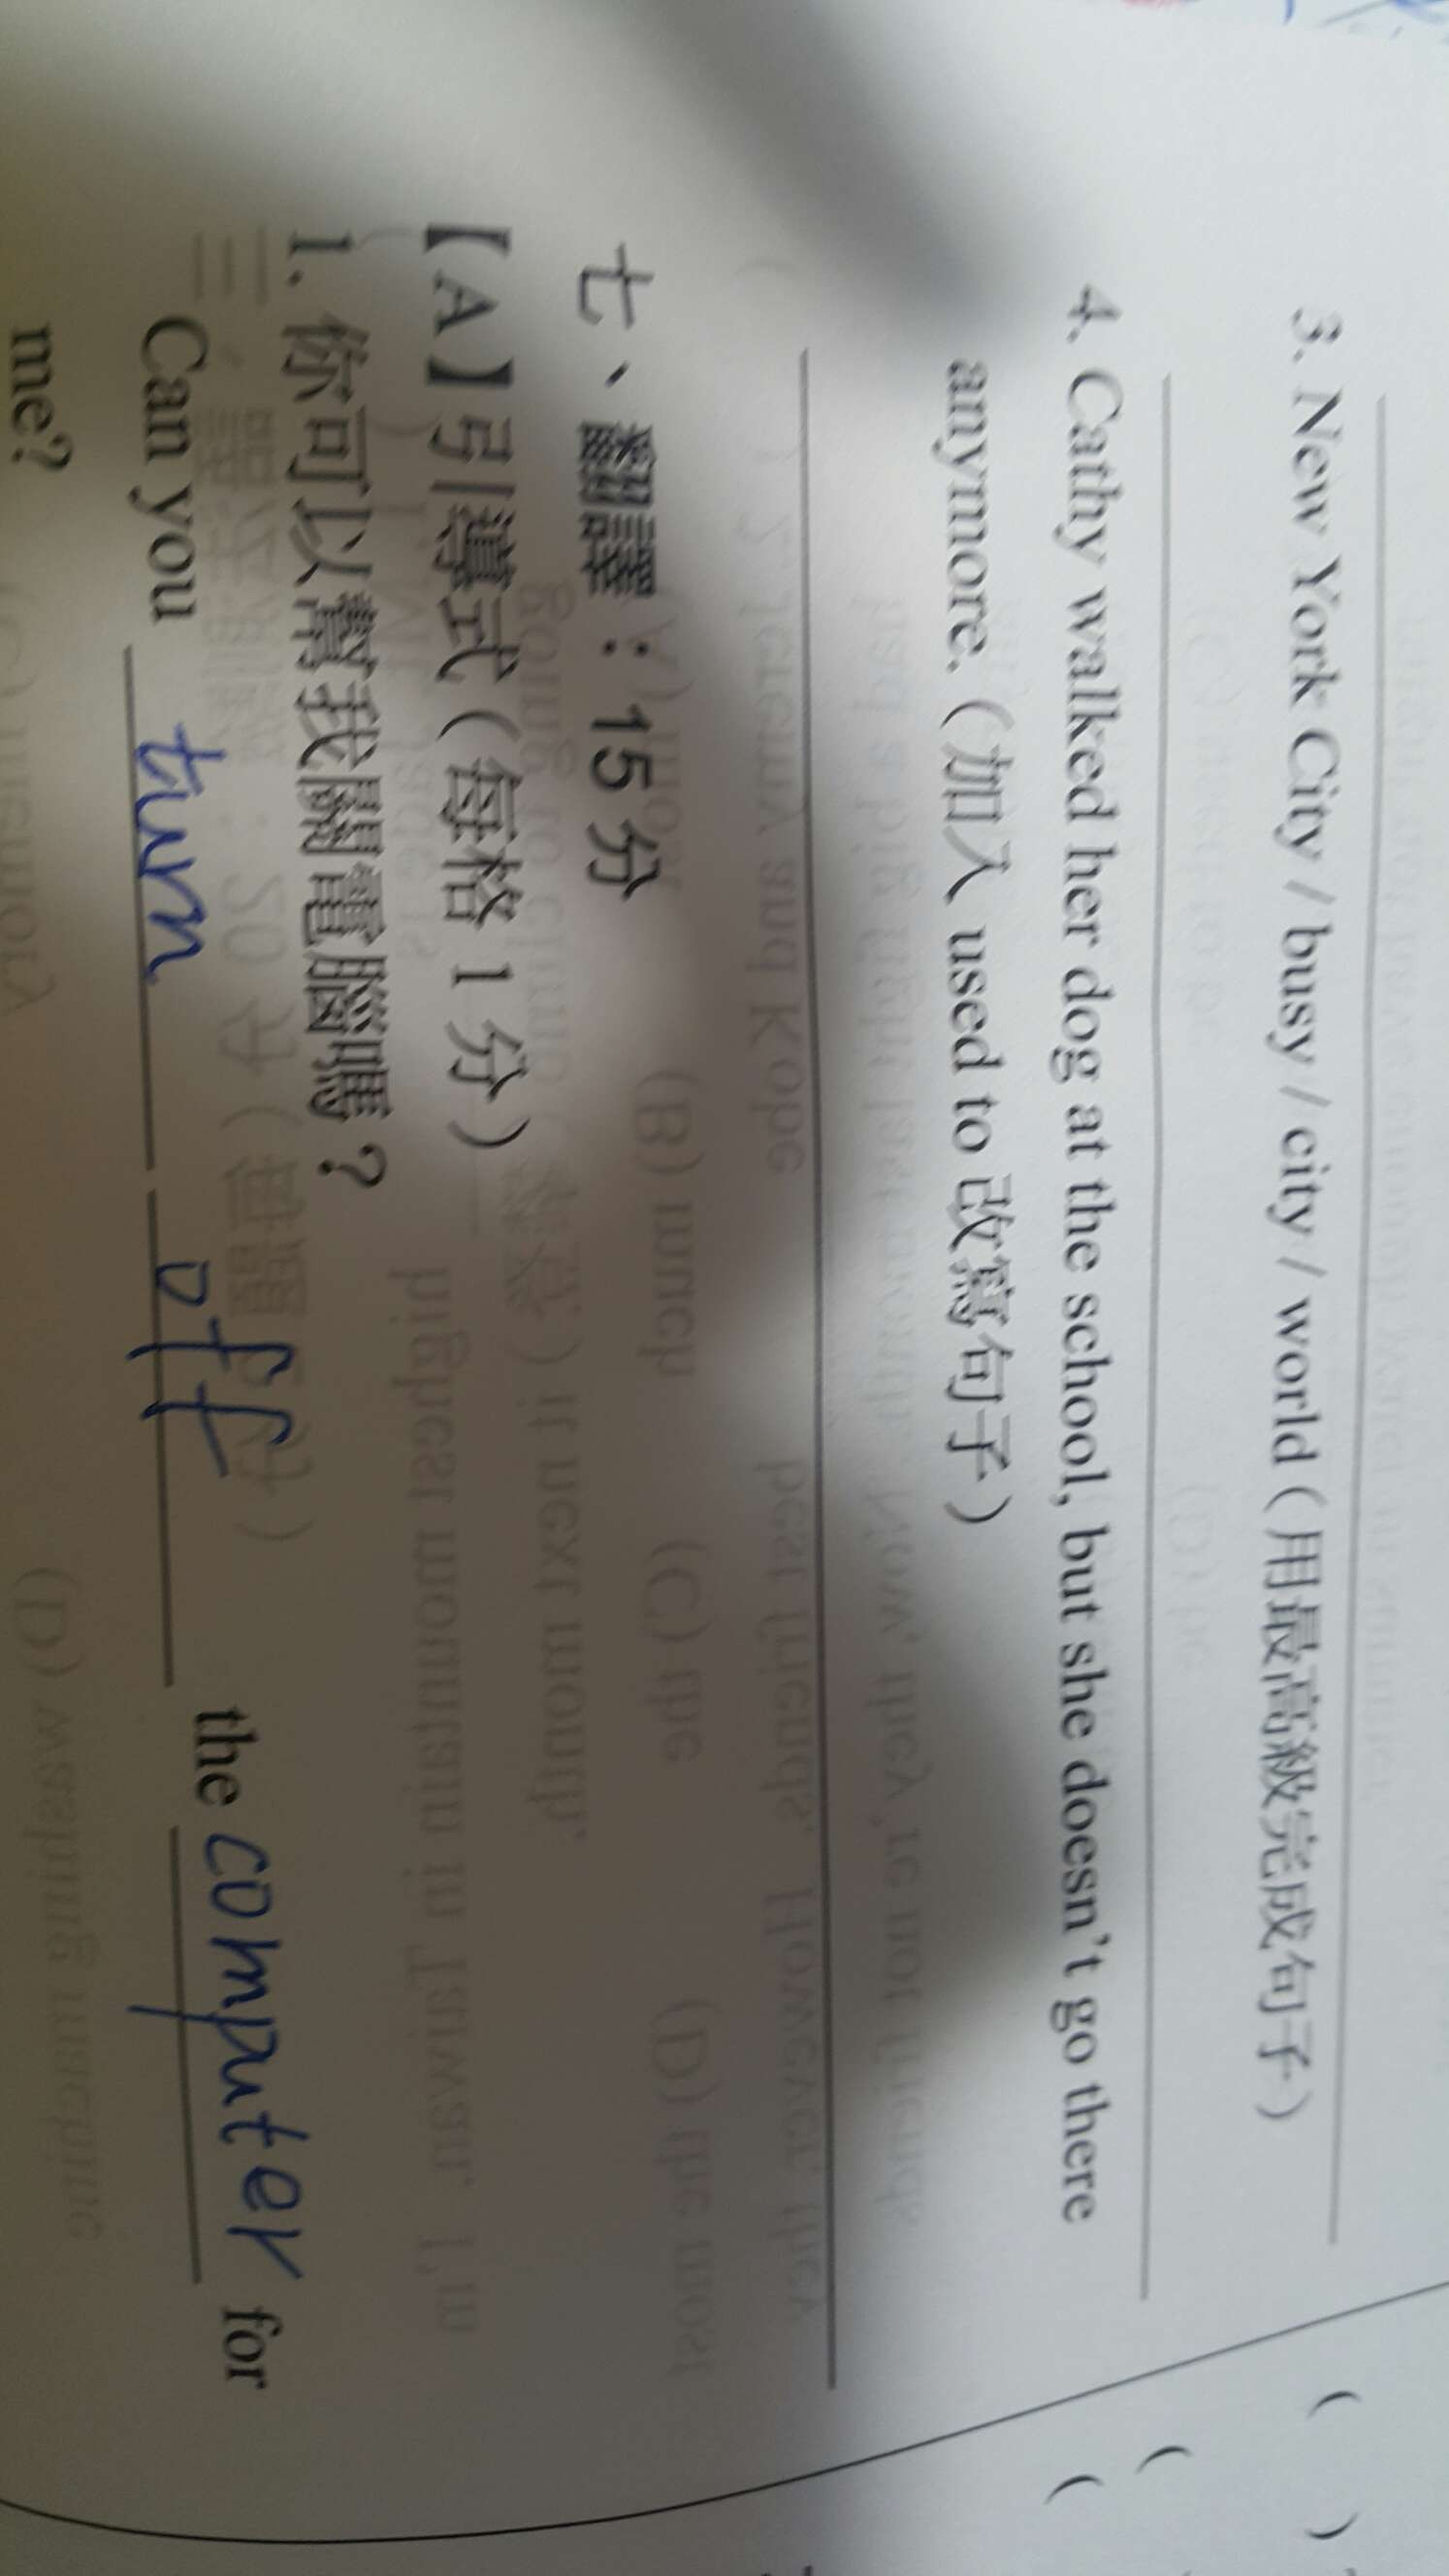 3. New York City / busy / city / world（用最高級完成句子）
4. Cathy walked her dog at the school, but she doesn't go there
anymore.（加入 used to 改寫句子）
七、翻譯：15 分
【A】引導式（每格 1 分）
1. 你可以幫我關電腦嗎？
Can you turn off the computer for
me?